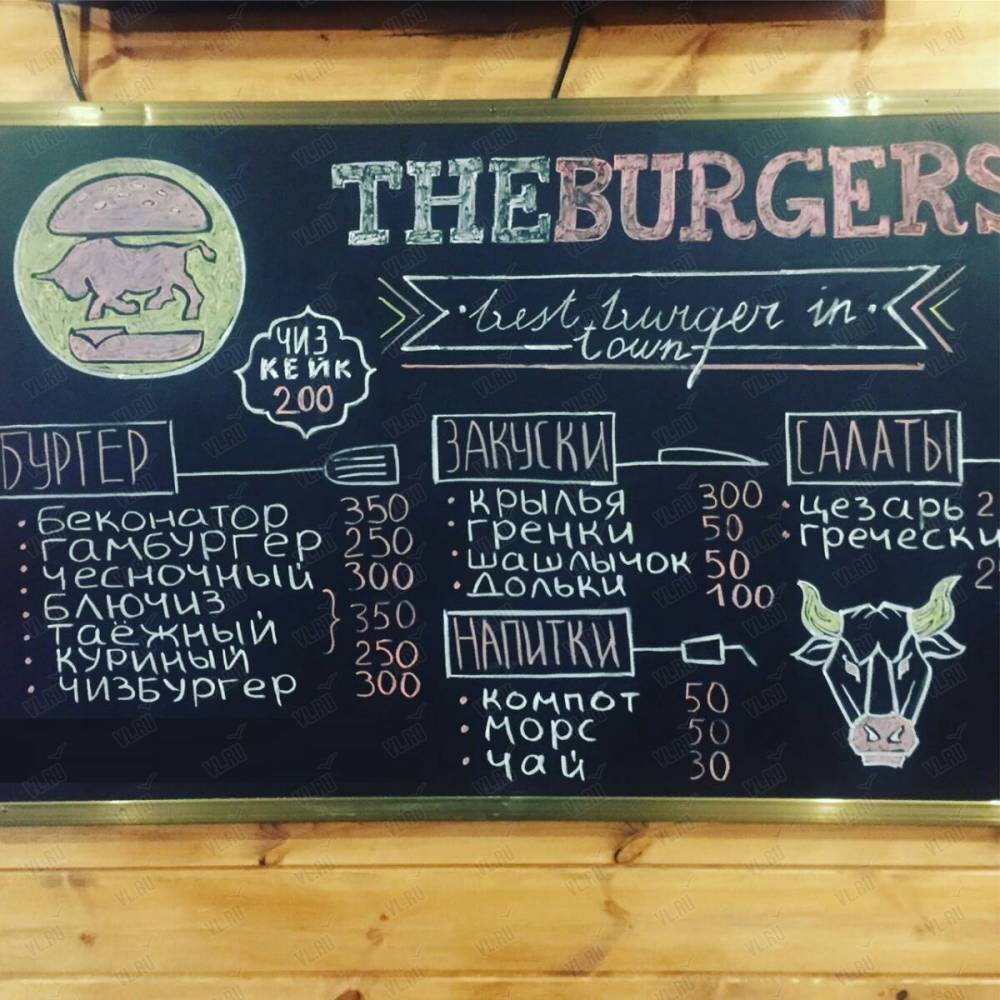 THEBURGERS
· best burger in ·
town
ЧИЗ
КЕЙК
200
БУРГЕР
· беконатор 350
· гамбургер 250
· чесночный 300
· блючиз
· таёжный } 350
· куриный 250
· чизбургер 300
ЗАКУСКИ
· крылья 300
· гренки 50
· шашлычок 50
· дольки 100
НАПИТКИ
· компот 50
· морс 50
· чай 30
САЛАТЫ
· цезарь 2
· гречески
2
VL.RU